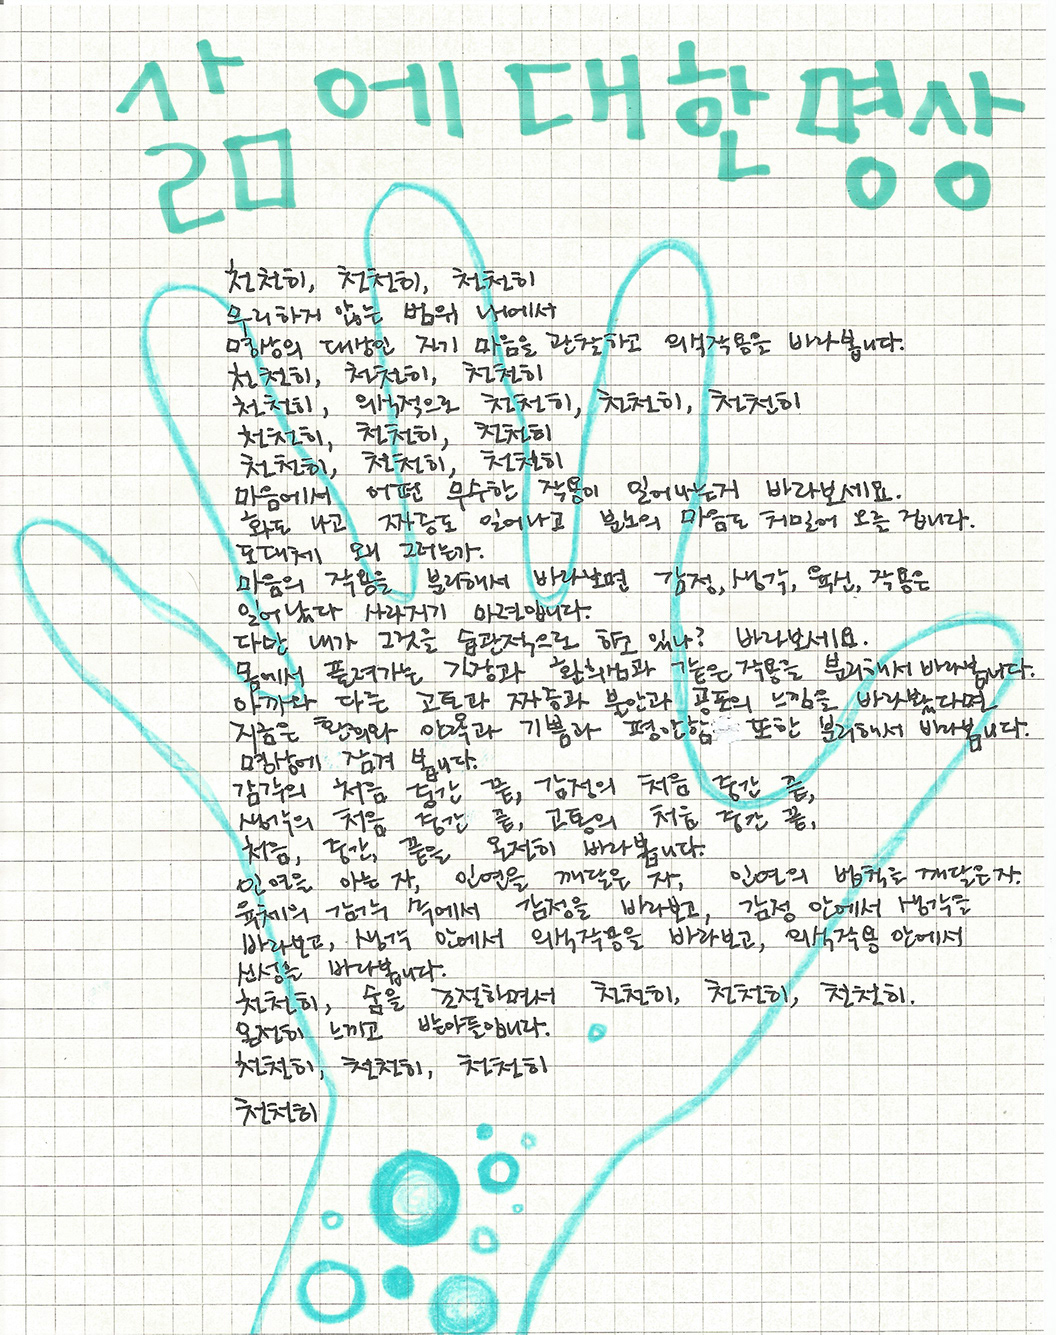 삶에 대한 명상
천천히, 천천히, 천천히
무리하지 않는 범위 내에서
명상의 대상인 자기 마음을 관찰하고 의식작용을 바라봅니다.
천천히, 천천히, 천천히
천천히, 의식적으로 천천히, 천천히, 천천히
천천히, 천천히, 천천히
천천히, 천천히, 천천히
마음에서 어떤 무수한 작용이 일어나는지 바라보세요.
화도 나고 짜증도 일어나고 분노의 마음도 치밀어 오를 겁니다.
도대체 왜 그러는가.
마음의 작용을 분리해서 바라보면 감정, 생각, 육신, 작용은
일어났다 사라지기 마련입니다.
다만 내가 그것을 습관적으로 하고 있나? 바라보세요.
몸에서 풀려가는 긴장과 환희심과 같은 작용을 분리해서 바라봅니다.
아까와 다른 고통과 짜증과 불안과 공포의 느낌을 바라봤다면
지금은 환희와 안락과 기쁨과 평안함 또한 분리해서 바라봅니다.
명상에 잠겨 봅니다.
감각의 처음 중간 끝, 감정의 처음 중간 끝,
생각의 처음 중간 끝, 고통의 처음 중간 끝,
처음, 중간, 끝을 온전히 바라봅니다.
인연을 아는 자, 인연을 깨달은 자, 인연의 법칙을 깨달은 자.
육체의 감각 속에서 감정을 바라보고, 감정 안에서 생각을
바라보고, 생각 안에서 의식작용을 바라보고, 의식작용 안에서
신성을 바라봅니다.
천천히, 숨을 조절하면서 천천히, 천천히, 천천히.
온전히 느끼고 받아들입니다.
천천히, 천천히, 천천히
천천히